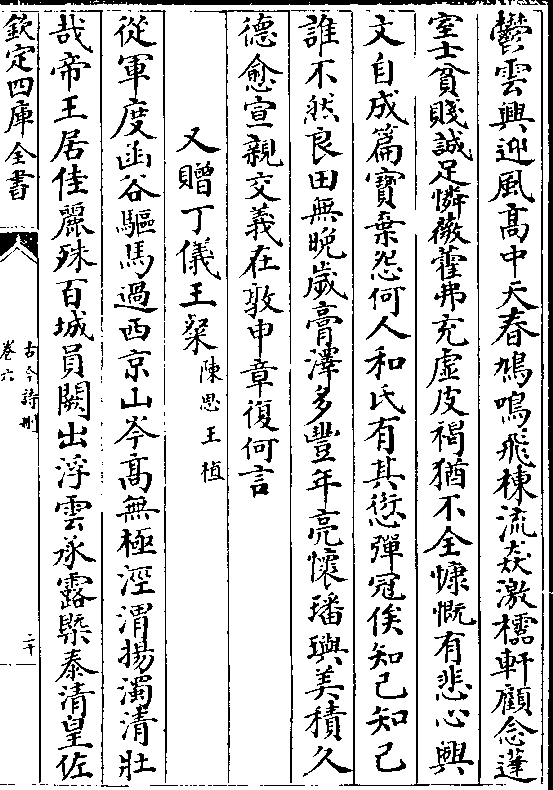 鬱雲興迎風髙中天春鳩鳴飛棟流猋激櫺軒顧念蓬
室士貧賤誠足憐薇藿弗充虚皮褐猶不全慷慨有悲心興
文自成篇寳棄怨何人和氏有其愆彈冠俟知己知己
誰不然良田無晩嵗膏澤多豐年亮懷璠璵美積久
德愈宣親交義在敦申章復何言
又贈丁儀王粲陳思王植
從軍度函谷驅馬過西京山岑髙無極涇渭揚濁清壯
哉帝王居佳麗殊百城員闕出浮雲承露槩泰清皇佐
欽定四庫全書
古今詩刪
卷六
二十